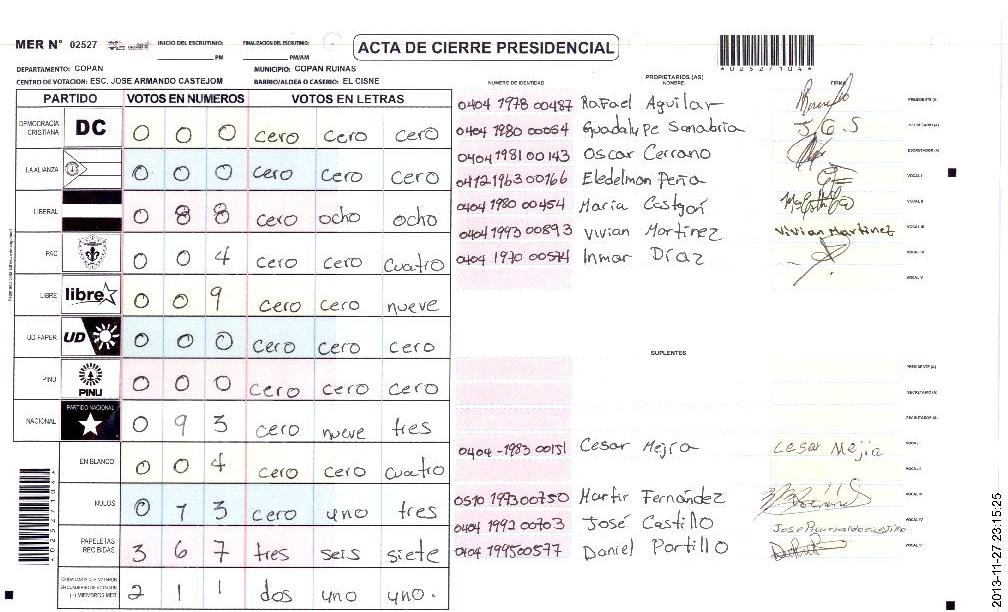 MER N° 02527 INICIO DEL ESCRUTINIO: PM FINALIZACION DEL ESCRUTINIO: PM/AM ACTA DE CIERRE PRESIDENCIAL
DEPARTAMENTO: COPAN MUNICIPIO: COPAN RUINAS
CENTRO DE VOTACION: ESC. JOSE ARMANDO CASTEJOM BARRIO/ALDEA O CASERIO: EL CISNE
025271044
PARTIDO VOTOS EN NUMEROS VOTOS EN LETRAS
DEMOCRACIA CRISTIANA DC 0 0 0 cero cero cero
LA ALIANZA 0 0 0 cero cero cero
LIBERAL 0 8 8 cero ocho ocho
PAC 0 0 4 cero cero cuatro
LIBRE libre 0 0 9 cero cero nueve
UD-FAPER UD 0 0 0 cero cero cero
PINU PINU 0 0 0 cero cero cero
NACIONAL PARTIDO NACIONAL 0 9 3 cero nueve tres
EN BLANCO 0 0 4 cero cero cuatro
NULOS 0 1 3 cero uno tres
PAPELETAS RECIBIDAS 3 6 7 tres seis siete
CIUDADANOS QUE VOTARON EN CUADERNO DE VOTACION (+) MIEMBROS MER 2 1 1 dos uno uno.
PROPIETARIOS (AS)
NUMERO DE IDENTIDAD NOMBRE FIRMA
0404 1978 00487 Rafael Aguilar PRESIDENTE (A)
0404 1980 00054 Guadalupe Sanabria J.G.S SECRETARIO (A)
0404 1981 00143 Oscar Cerrano ESCRUTADOR (A)
0412 1963 00166 Eledelmon Peña VOCAL I
0404 1980 00454 Maria Castgon VOCAL II
0404 1993 00893 Vivian Martinez Vivian Martinez VOCAL III
0404 1970 00574 Inmar Díaz VOCAL IV
VOCAL V
SUPLENTES
PRESIDENTE (A)
SECRETARIO (A)
ESCRUTADOR (A)
0404 -1983 00151 Cesar Mejia Cesar Mejia VOCAL I
VOCAL II
0510 1973 00750 Martir Fernández VOCAL III
0404 1992 00703 José Castillo VOCAL IV
0404 1995 00577 Daniel Portillo VOCAL V
025271044
2013-11-27 23:15:25